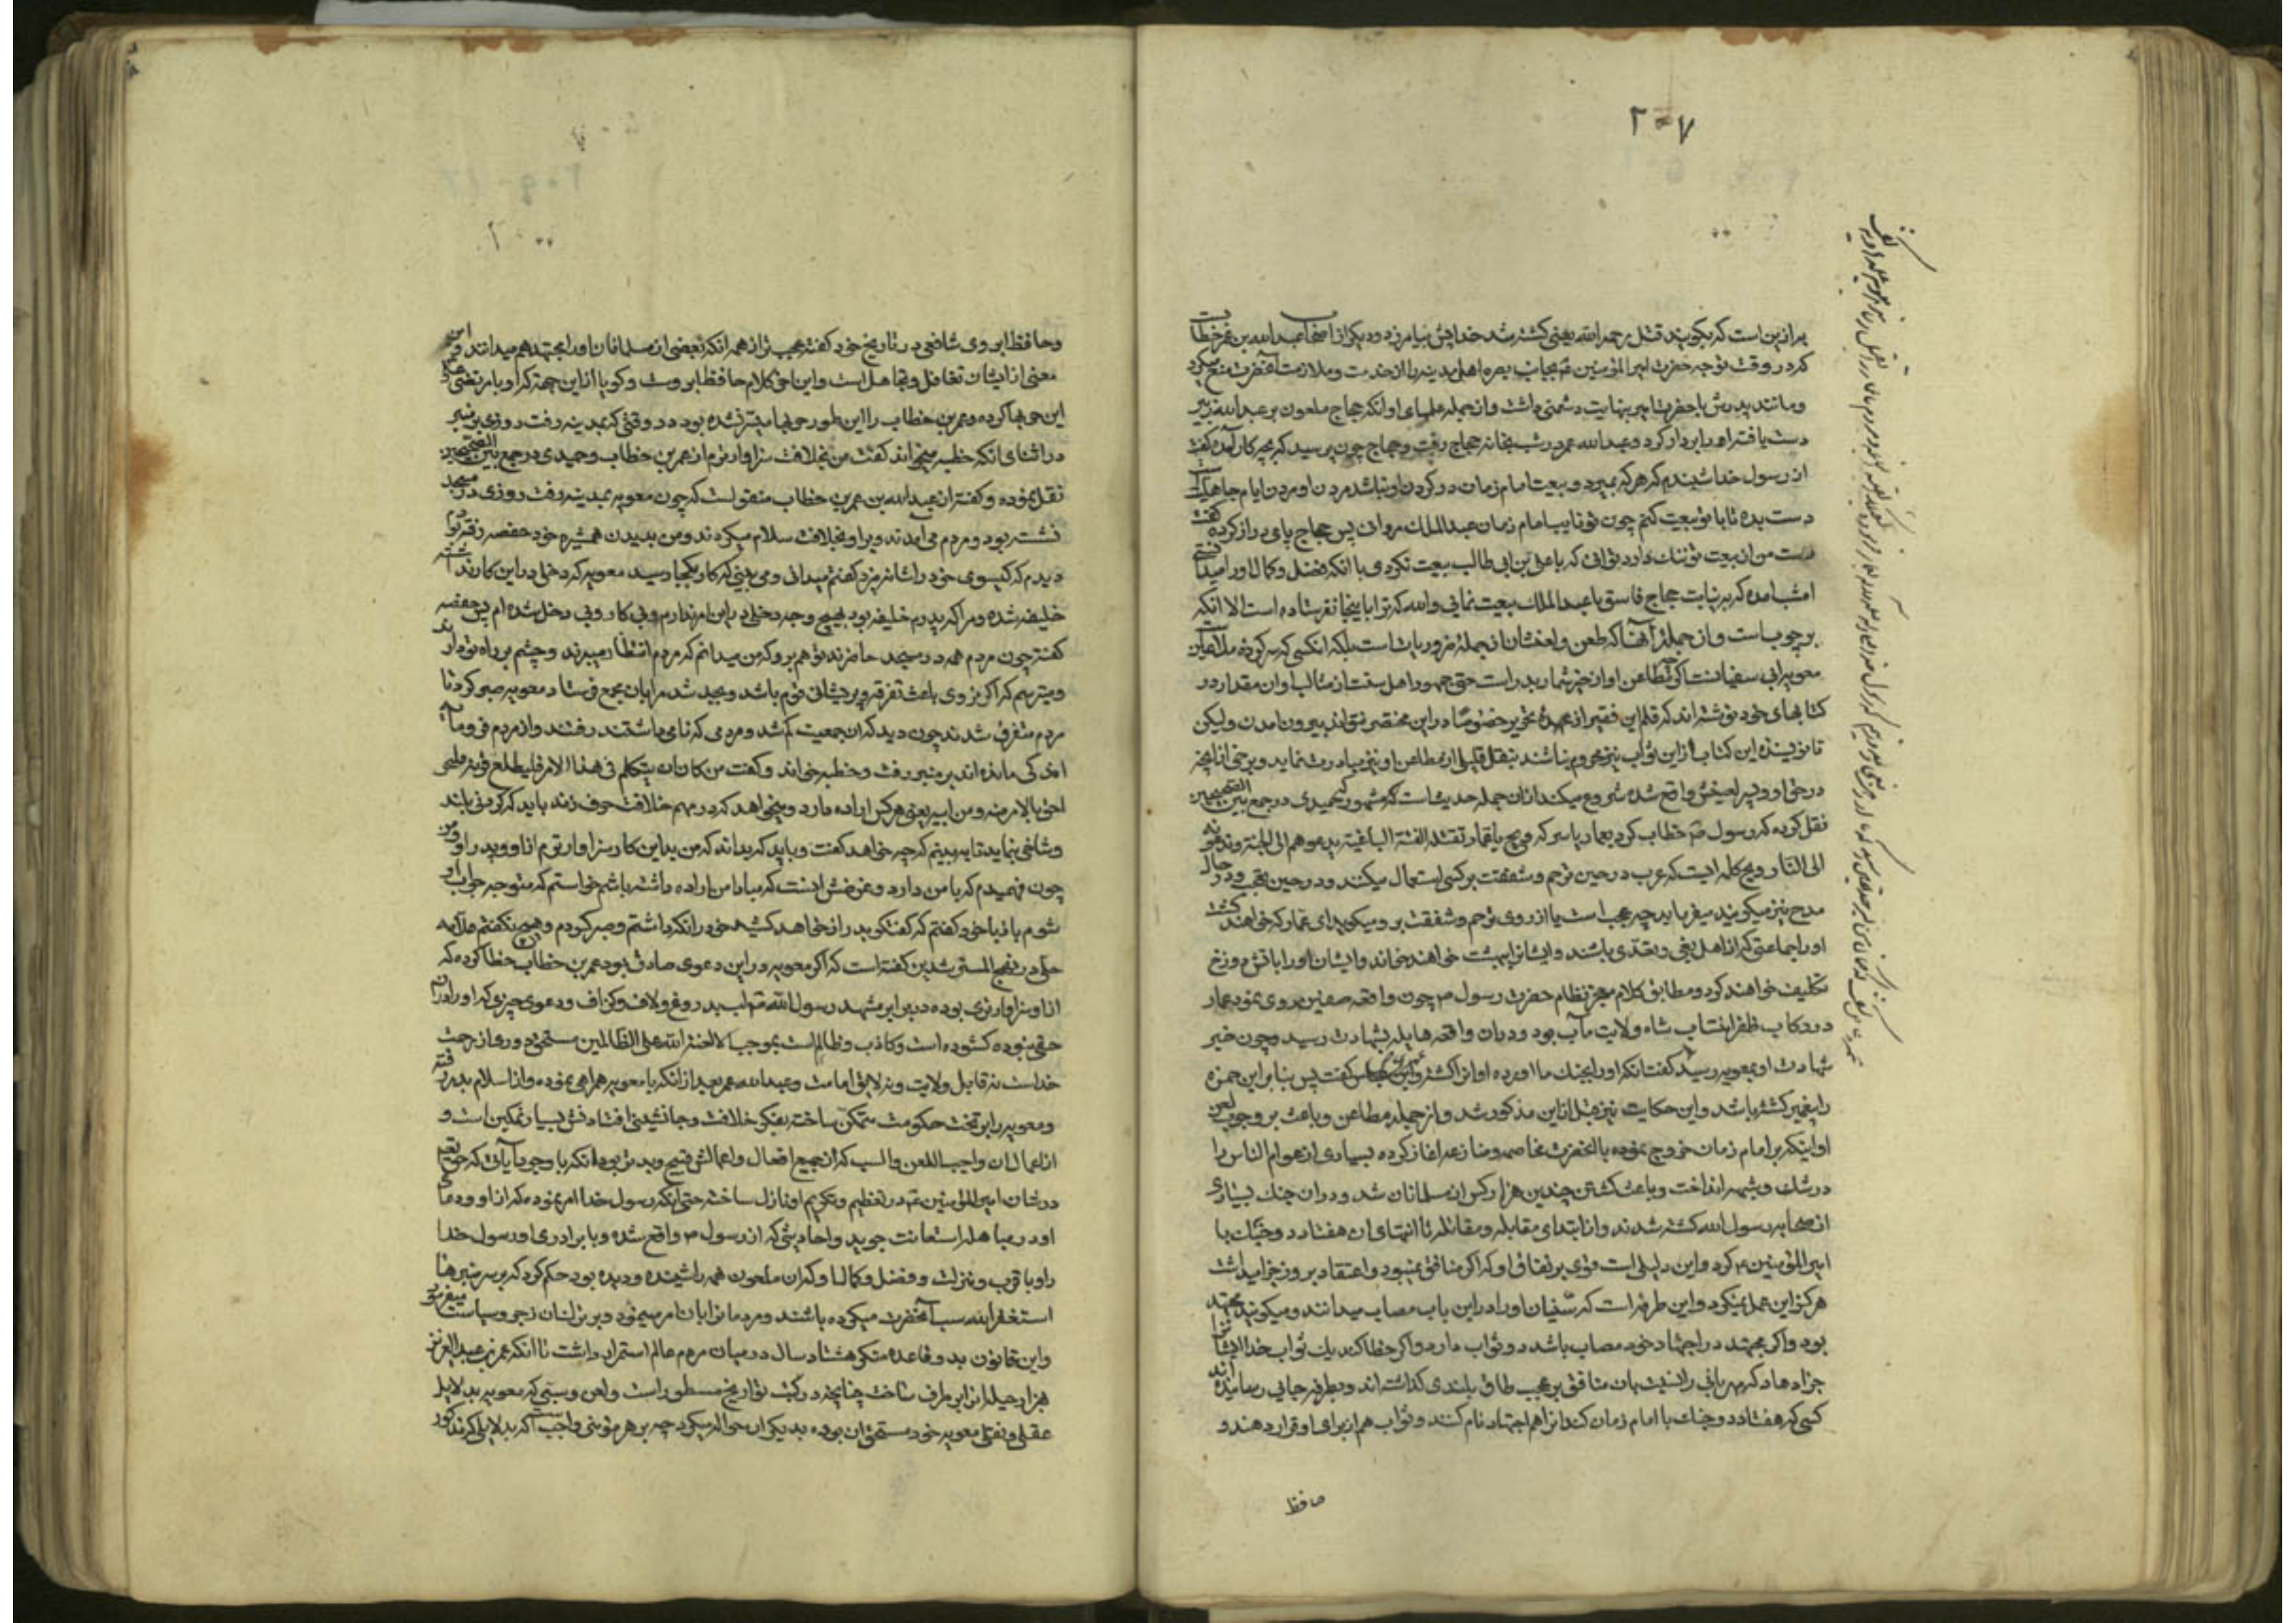 ۲۰۷
براز ین است که بکویند قتل رحمه الله یعنی کشته شد خدایش بیامرزد و دیکر از اصحاب عبدالله بن عمر خطاب
کرد در وقت توجه حضرت امیرالمؤمنین بجانب بصره اهل مدینه را از خدمت و ملازمت آنحضرت منع میکرد
و مانند پدرش با حضرت امیر بنهایت دشمنی داشت و از جمله علمهای او آنکه حجاج ملعون بر عبدالله زبیر
دست یافته او را بردار کرد و عبدالله عمر در شب بخانه حجاج رفت و حجاج چون پرسید که بچه کار آمده گفت
از رسول خدا شنیدم که هرکه بمیرد و بیعت امام زمان در کردن او نباشد مردن او مردن ایام جاهلیت
دست بده تا با تو بیعت کنم چون تو نایب امام زمان عبدالملک مروانی پس حجاج پای دراز کرده گفت
دست من از بیعت تو ننک دارد تو آنی که با علی بن ابی طالب بیعت نکردی با آنکه فضل و کمال او را میدانستی
امشب آمده که بر نیابت حجاج فاسق با عبدالملک بیعت نمائی والله که ترا باینجا نفرستاده است الا آنکه
بر چوب است و از جمله آنها که طعن و لعنشان از جمله ضروریات است بلکه آنکسی که سرکرده ملاعین
معویه ابی سفیانست که مطاعن او از حیز شمار بدر است حتی جمهور اهل سنت از مثالب او آن مقدار در
کتابهای خود نوشته اند که قلم این فقیر از عهده تحریر خصوصا در این مختصر نتواند بیرون آمدن ولیکن
تا نویسنده این کتاب از این ثواب نیز محروم نباشند بنقل قلیل از مطاعن او نیز مبادرت نماید و برخی از آنچه
در حق او و پدر لعینش واقع شده شروع میکند از آن جمله حدیثیست که مشهور که حمیدی در جمع بین الصحیحین
نقل کرده که رسول ص خطاب کرد بعمار یاسر که ویح یا عمار تقتله الفئة الباغیة یدعوهم الی الجنة و یدعونه
الی النار و ویح کلمه ایست که عرب در حین ترحم و شفقت بر کسی استعمال میکنند و در حین تعجب و در حال
مدح نیز میکویند میفرماید چه عجب است یا از روی ترحم و شفقت بر او میکوید ای عمار که خواهند کشت
او را جماعتی که از اهل بغی و تعدی باشند و ایشانرا ببهشت خواهند خواند و ایشان او را باتش دوزخ
تکلیف خواهند کرد و مطابق کلام معجز نظام حضرت رسول ص چون واقعه صفین روی نمود عمار
در رکاب ظفر انتساب شاه ولایت مآب بود و در آن واقعه هایله بشهادت رسید و چون خبر
شهادت او بمعویه رسید گفت آنکه او را بجنک ما آورده او را کشته گفت پس بنابراین حمزه
را پیغمبر کشته باشد و این حکایت نیز قبل از این مذکور شد و از جمله مطاعن و باعث بر وجوب لعن
او اینکه بر امام زمان خروج نموده با آنحضرت مخاصمه و منازعه آغاز کرده بسیاری از عوام الناس را
در شک و شبهه انداخت و باعث کشتن چندین هزار کس از مسلمانان شد و در آن جنک بسیاری
از صحابه رسول الله کشته شدند و از ابتدای مقابله و مقاتله تا انتهای آن هفتاد و دو جنک با
امیرالمؤمنین ع کرد و این دلیلی است قوی بر نفاق او که اکر منافق نمیبود و اعتقاد بروز جزا میداشت
هرکز این عمل نمیکرد و این طرفه است که سنیان او را در این باب مصاب میدانند و میکویند مجتهد
بود و اکر مجتهد در اجتهاد خود مصاب باشد دو ثواب دارد و اکر خطا کند یک ثواب خدا ایشانرا
جزا دهاد که مهربانی را نسبت بآن منافق بر عجب طاق بلندی کذاشته اند و بطرفه جایی رسانیده اند
کسی که هفتاد و دو جنک با امام زمان کند آنرا هم اجتهاد نام کنند و ثواب هم از برای او قرار دهند و
حافظ
وحافظ ابروی شافعی در تاریخ خود گفته عجب تر از همه آنکه بعضی از مسلمانان او را مجتهد هم میدانند و این
معنی از ایشان تغافل و تجاهل است و این حق کلام حافظ ابروست و کویا از این جهة که او با مرتضی علی
این حربها کرده و عمر بن خطاب را این طور حربها میسر نشده بود در وقتی که بمدینه رفت روزی بر منبر
در اثنای آنکه خطبه میخواند گفت من بخلافت سزاوارترم از عمر بن خطاب و حمیدی در جمع بین الصحیحین
نقل نموده و گفته از عبدالله بن عمر بن خطاب منقولست که چون معویه بمدینه رفت روزی در مسجد
نشسته بود و مردم می آمدند و بر او بخلافت سلام میکردند و من بدیدن همشیره خود حفصه رفتم
دیدم که کیسوی خود را شانه میزد کفتم میدانی و می بینی که کار بکجا رسید معویه که دخلی در این کار نداشته
خلیفه شده و مرا که پدرم خلیفه بود بهیچ وجه دخلی در این امر ندارم و بی کار و بی دخل شده ام پس حفصه
کفت چون مردم همه در مسجد حاضرند تو هم برو که من میدانم که مردم انتظار میبرند و چشم بر راه تو دارند
و میترسم که اکر نروی باعث تفرقه و پریشانی قوم باشد و بجد شد مرا بآن مجمع فرستاد معویه صبر کرد تا
مردم متفرق شدند چون دید که آن جمعیت کم شد و مردمی که نامی داشتند رفتند و از مردم فرومایه
اندکی مانده اند بر منبر رفت و خطبه خواند و گفت من کان ان یتکلم فی هذا الامر فلیطلع قرنه فلنحن
احق بالامر منه و من ابیه یعنی هر کس اراده دارد و میخواهد که در مهم خلافت حرف زند باید که کردنی بلند
و شاخی بنماید تا به بینم که چه خواهد گفت و باید که بداند که من بدین کار سزاوارترم از او و پدر او و من
چون فهمیدم که با من دارد و غرضش اینست که مبادا من اراده داشته باشم خواستم که متوجه جواب او
شوم باز با خود کفتم که گفتگو بدراز خواهد کشید خود را نکه داشتم و صبر کردم و هیچ نگفتم علامه
حلی در نهج المسترشدین گفته است که اکر معویه در این دعوی صادق بود عمر بن خطاب خطا کرده که
از او سزاوارتری بوده و در برابر مشهد رسول الله ص لب بدروغ و لاف و کزاف و دعوی چیزی که او را در آن
حقی نبوده کشوده است و کاذب و ظالم است بموجب الا لعنة الله علی الظالمین مستحق دوری از رحمت
خداست نه قابل ولایت و نه لایق امامت و عبدالله عمر بعد از آنکه با معویه همراهی نموده و از اسلام بدر رفته
و معویه را بر تخت حکومت متمکن ساخته بفکر خلافت و جانشینی افتادنش بسیار نمکین است و
از اعمال آن واجب اللعن والسب که از جمیع افعال و اعمالش قبیح و بدتر بود آنکه با وجود آیاتی که حق تعالی
در شان امیرالمؤمنین ع در تعظیم و تکریم او نازل ساخته حتی اینکه رسول خدا امر نموده که از او و دعای
او در مباهله استعانت جوید و احادیثی که از رسول ص واقع شده و با برادری او رسول خدا
را و با قرب و منزلت و فضل و کمال او که آن ملعون همه را شنیده و دیده بود حکم کرد که بر سر منبرها
استغفرالله سب آنحضرت میکرده باشند و مردمانرا بآن امر مینمود و بر ترک آن زجر و سیاست میفرمود
و این قانون بد و قاعده منکر هشتاد سال در میان مردم عالم استمرار داشت تا آنکه عمر بن عبدالعزیز
هزار حیله آنرا بر طرف ساخت چنانچه در کتب تواریخ مسطور است و لعن و سبی که معویه بدلایل
عقلی و نقلی معویه خود مستحق آن بوده بدیکران حواله میکرد چه بر هر مؤمنی واجب است که بدلایل که مذکور